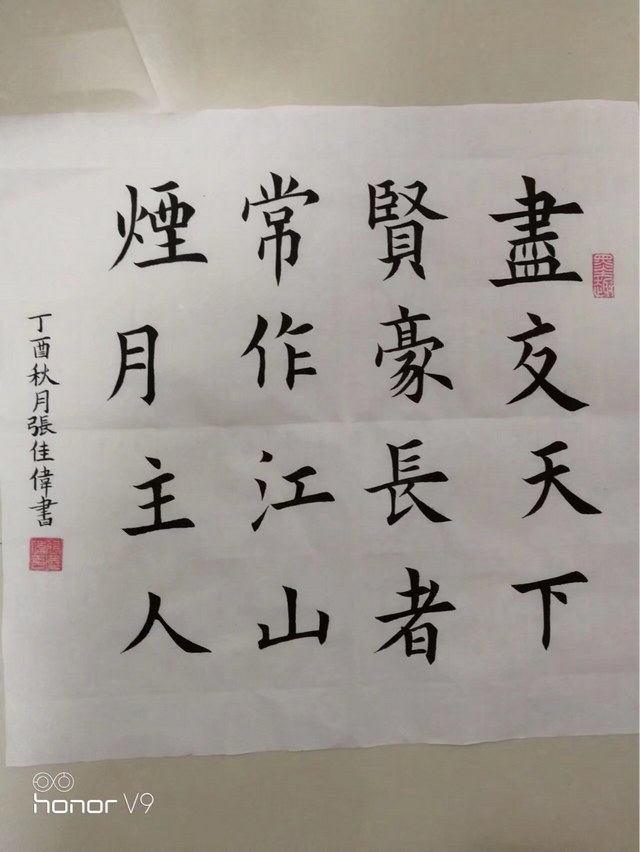 盡交天下
賢豪長者
常作江山
煙月主人
丁酉秋月張佳偉書
honor V9